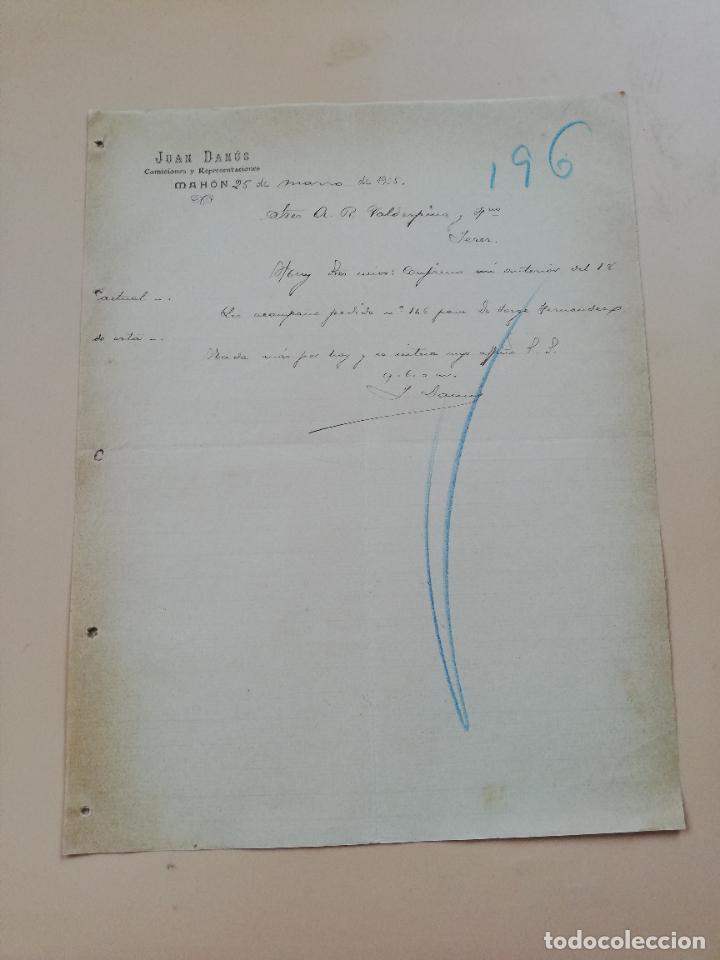 JUAN DANÚS
Comisiones y Representaciones
MAHÓN 25 de marzo de 1905.
196
Sres A. R. Valdespino y Hno
Jerez.
Muy Sres mios: Confirmo mi anterior del 18
actual -.
Les acompaño pedido nº 146 para D. Jorge Fernandez
de esta -.
Nada más por hoy y se reitera S. S.
q. b. s. m.
J Danus
todocoleccion
todocoleccion.net